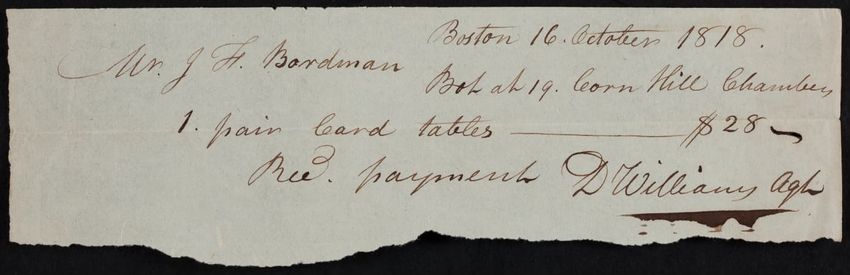 Boston 16. October 1818.
Mr. J H. Bordman
Bot at 19. Corn Hill Chambers
1. pair Card tables — $28 —
Recd. payment D Williams Agt